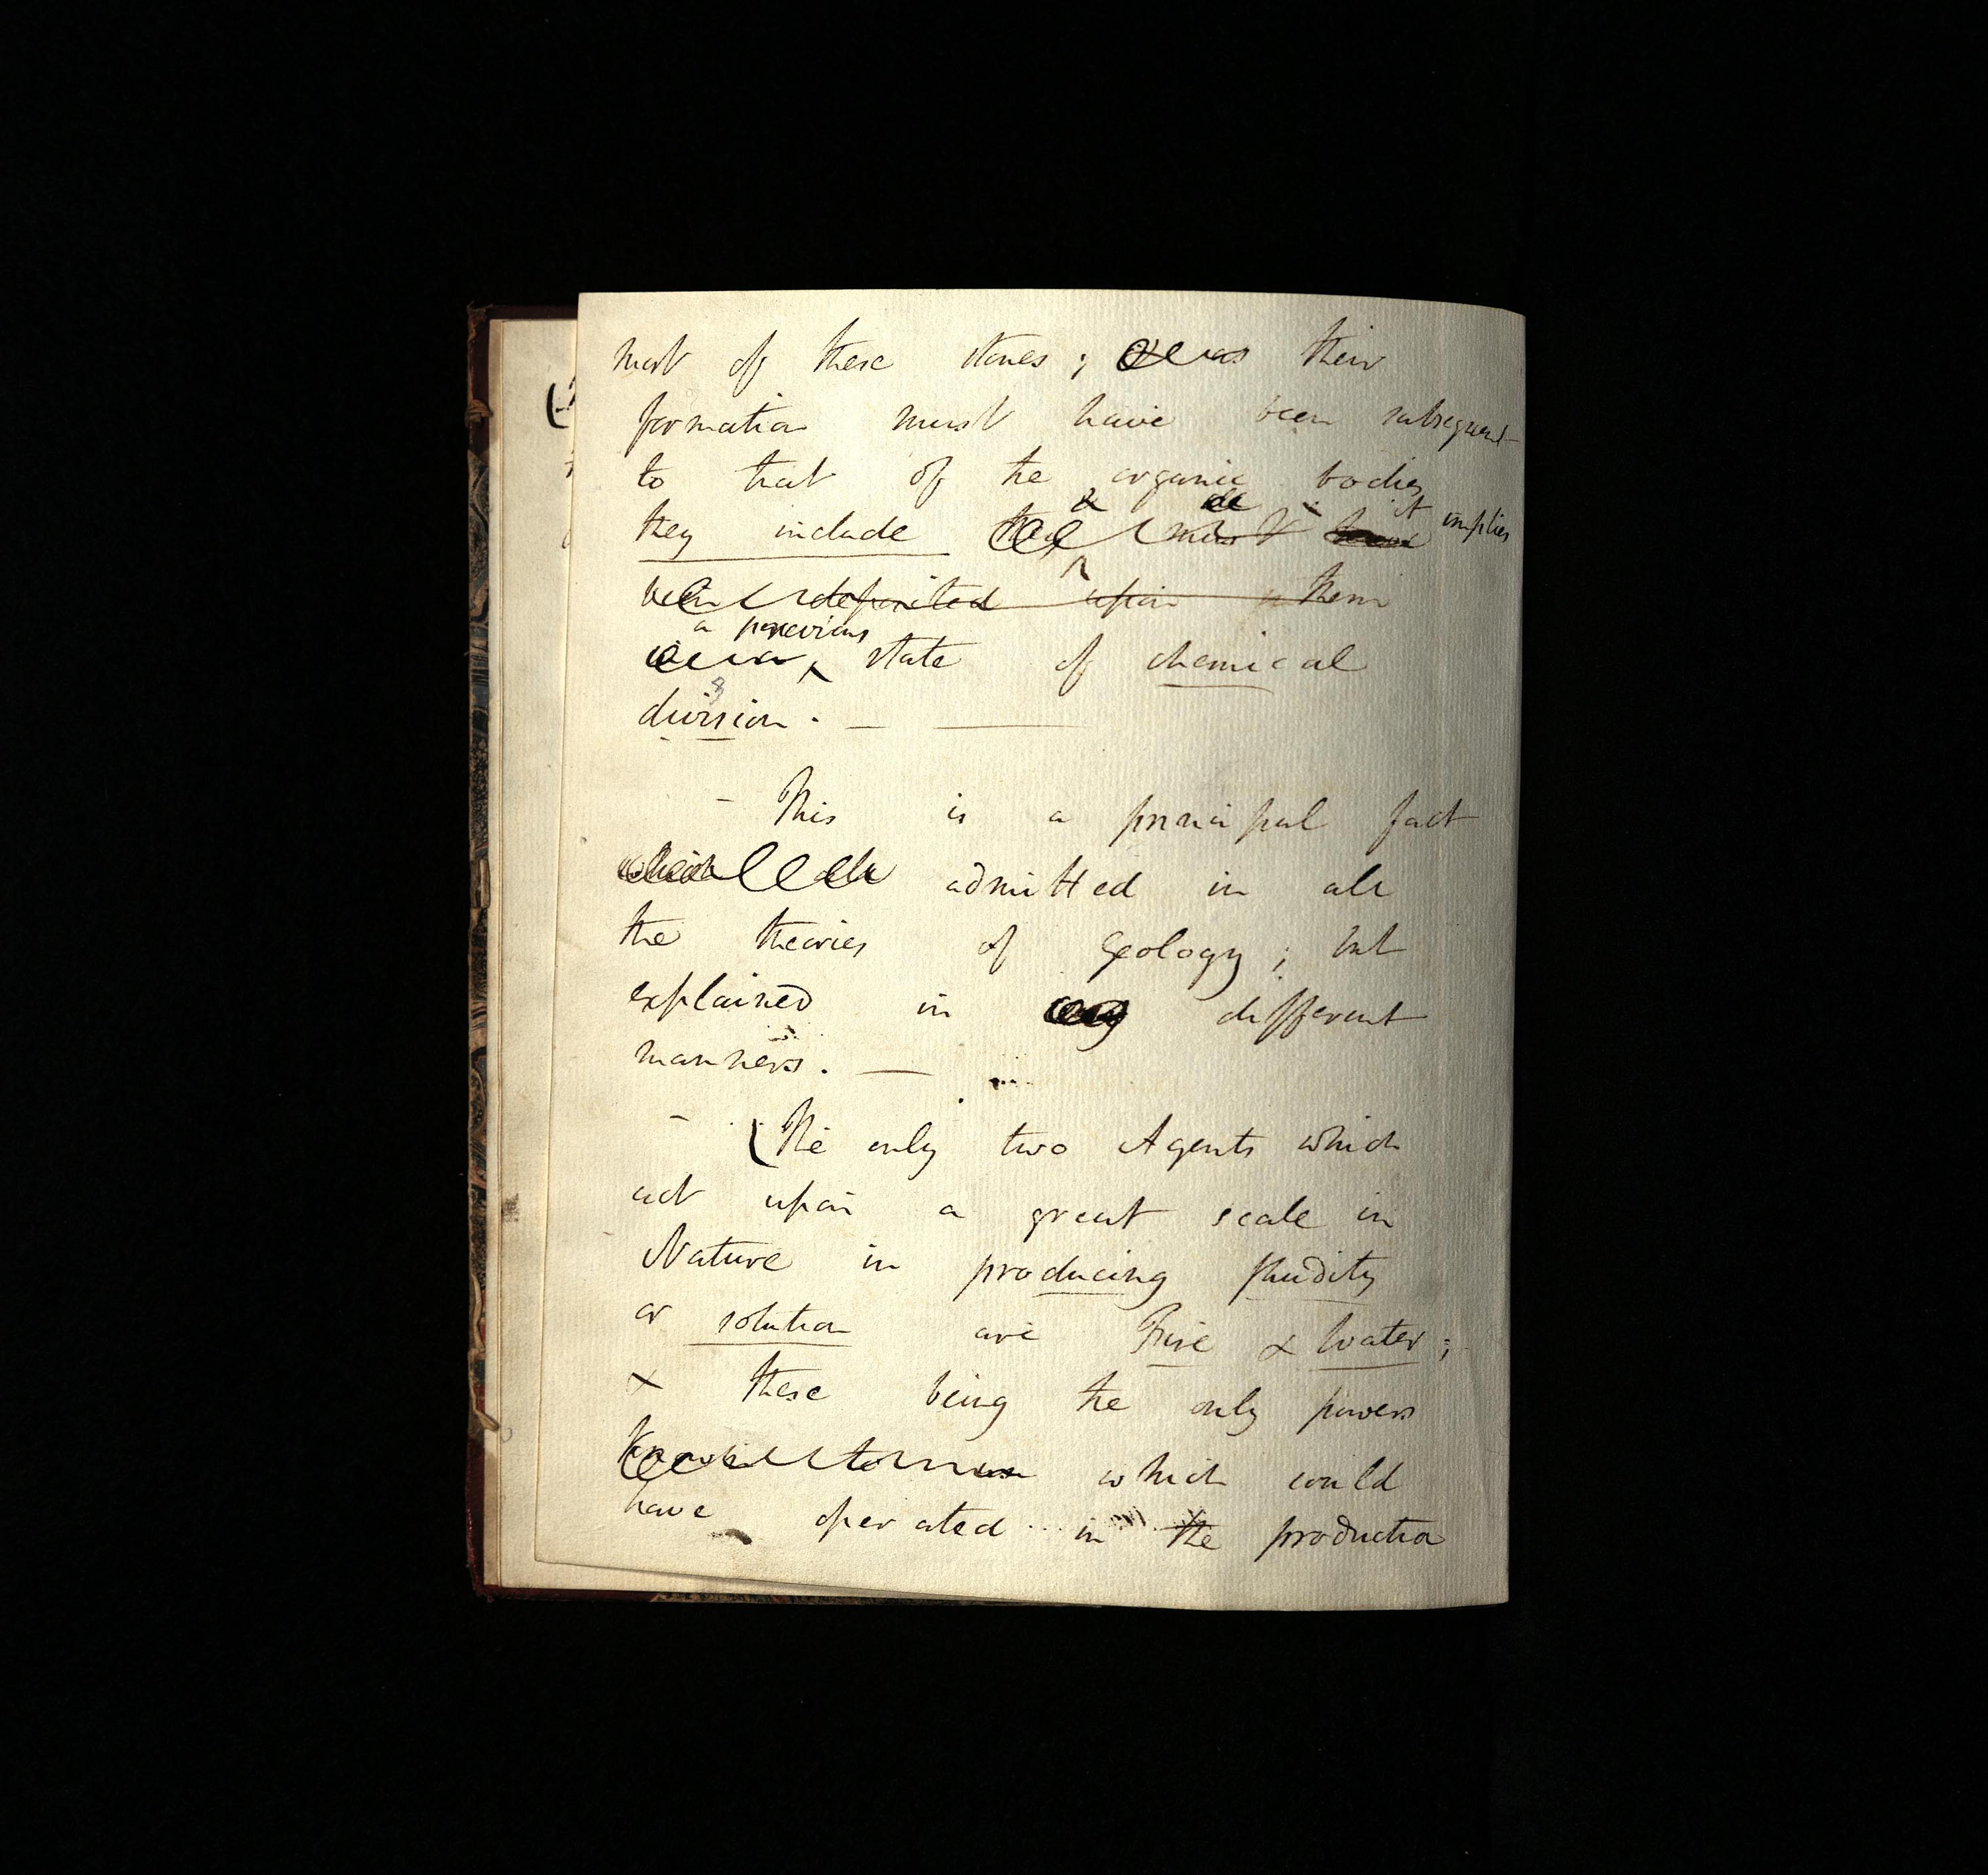 most of these stones; their
formation must have been subsequent
to that of the organic bodies
& it implies
they include they must
been deposited upon them
a previous
state of chemical
division. —
– This is a principal fact
which admitted in all
the theories of Geology; but
explained in different
manners. —
– (The only two Agents which
act upon a great scale in
Nature in producing fluidity
or solution are Fire & Water;
& these being the only powers
known to us which could
have operated in the production